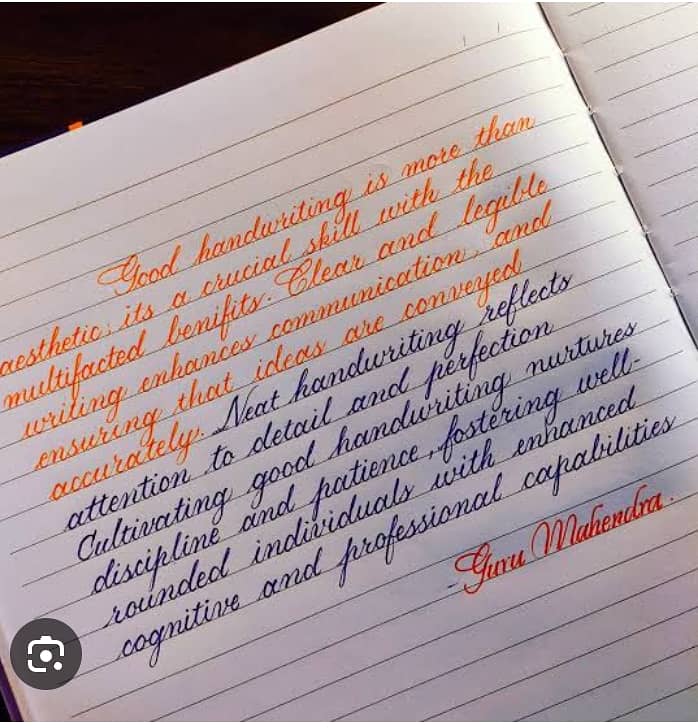 Good handwriting is more than
aesthetic; its a crucial skill with the
multifacted benifits. Clear and legible
writing enhances communication, and
ensuring that ideas are conveyed
accurately. Neat handwriting reflects
attention to detail and perfection
Cultivating good handwriting nurtures
discipline and patience, fostering well-
rounded individuals with enhanced
cognitive and professional capabilities
-Guru Mahendra.